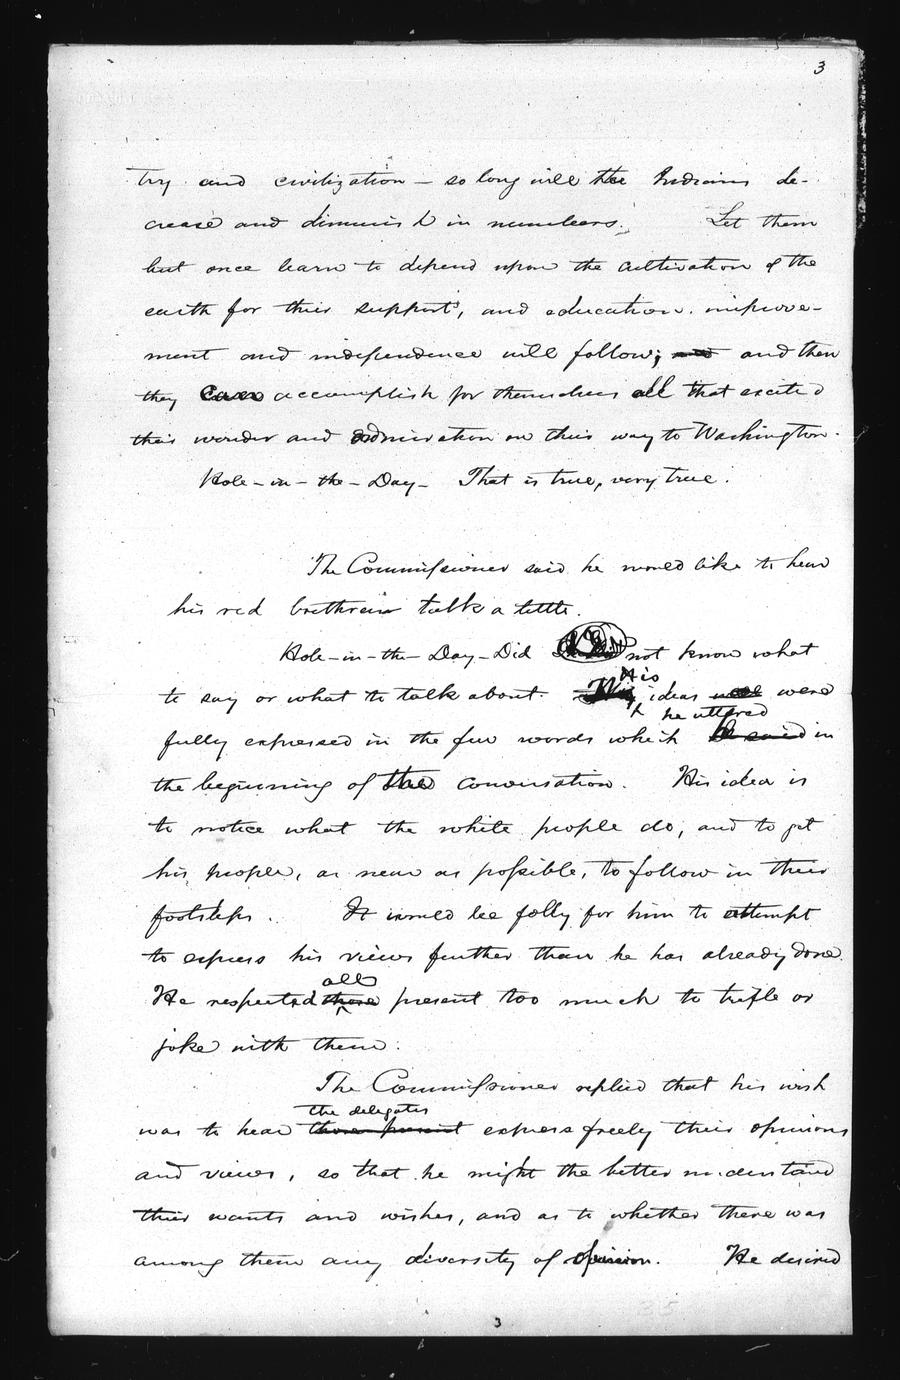 3
try and civilization – so long will the Indians de-
crease and diminish in numbers. Let them
but once learn to depend upon the cultivation of the
earth for their support, and education, improve-
ment and independence will follow; and and then
they can accomplish for themselves all that excited
their wonder and admiration on their way to Washington.
Hole-in-the-Day – That is true, very true.
The Commissioner said he would like to hear
his red brethren talk a little.
Hole-in-the-Day – Did not know what
His
to say or what to talk about. ideas were
he uttered
fully expressed in the few words which he said in
the beginning of the conversation. His idea is
to notice what the white people do, and to get
his people, as near as possible, to follow in their
footsteps. It would be folly for him to attempt
to express his views further than he has already done.
all
He respected those present too much to trifle or
joke with them.
The Commissioner replied that his wish
the delegates
was to hear those present express freely their opinions
and views, so that he might the better understand
their wants and wishes, and as to whether there was
among them any diversity of opinion. He desired
35
3